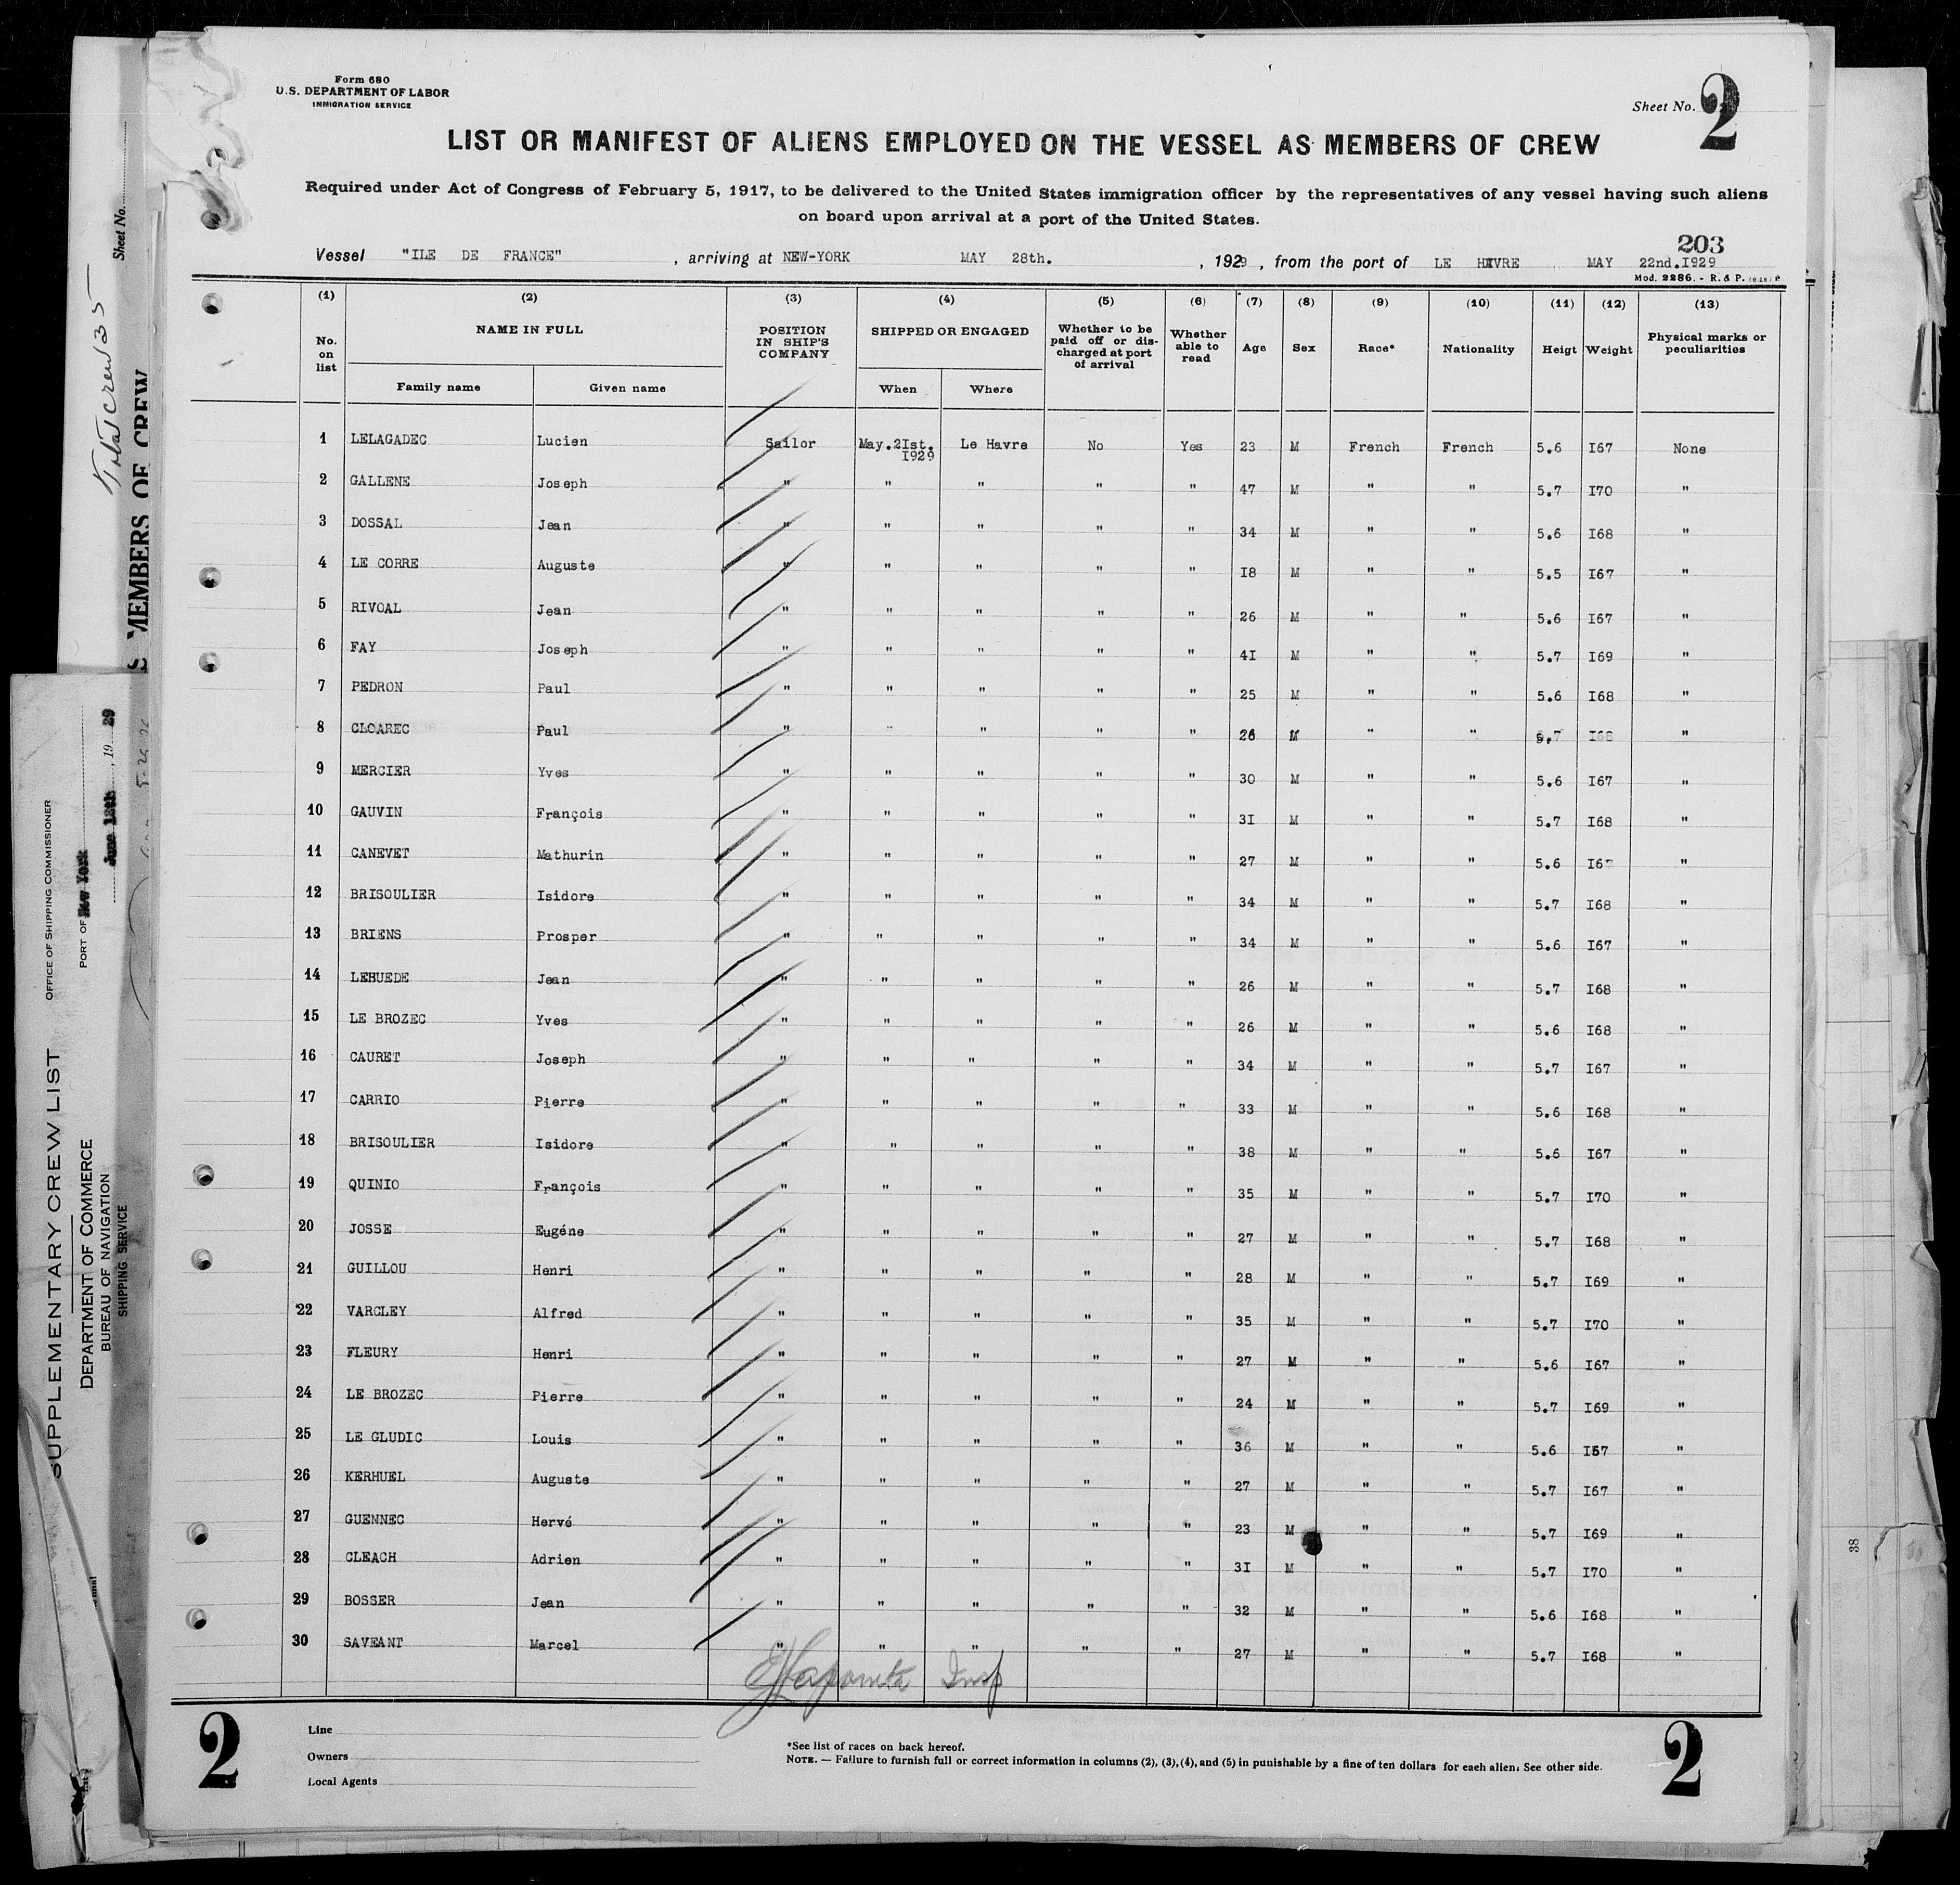 Form 680
U.S. DEPARTMENT OF LABOR
IMMIGRATION SERVICE
Sheet No. 2
LIST OR MANIFEST OF ALIENS EMPLOYED ON THE VESSEL AS MEMBERS OF CREW
Required under Act of Congress of February 5, 1917, to be delivered to the United States immigration officer by the representatives of any vessel having such aliens
on board upon arrival at a port of the United States.
203
Vessel "ILE DE FRANCE" , arriving at NEW-YORK MAY 28th. , 1929 , from the port of LE HAVRE MAY 22nd.I929
Mod. 2286. - R. & P.
(1) (2) (3) (4) (5) (6) (7) (8) (9) (10) (11) (12) (13)
No. on list NAME IN FULL Family name Given name POSITION IN SHIP'S COMPANY SHIPPED OR ENGAGED When Where Whether to be paid off or discharged at port of arrival Whether able to read Age Sex Race* Nationality Heigt Weight Physical marks or peculiarities
1 LELAGADEC Lucien Sailor May.2Ist. I929 Le Havre No Yes 23 M French French 5.6 I67 None
2 GALLENE Joseph " " " " " 47 M " " 5.7 I70 "
3 DOSSAL Jean " " " " " 34 M " " 5.6 I68 "
4 LE CORRE Auguste " " " " " I8 M " " 5.5 I67 "
5 RIVOAL Jean " " " " " 26 M " " 5.6 I67 "
6 FAY Joseph " " " " " 4I M " " 5.7 I69 "
7 PEDRON Paul " " " " " 25 M " " 5.6 I68 "
8 CLOAREC Paul " " " " " 26 M " " 5.7 I68 "
9 MERCIER Yves " " " " " 30 M " " 5.6 I67 "
10 GAUVIN François " " " " " 3I M " " 5.7 I68 "
11 CANEVET Mathurin " " " " " 27 M " " 5.6 I67 "
12 BRISOULIER Isidore " " " " " 34 M " " 5.7 I68 "
13 BRIENS Prosper " " " " " 34 M " " 5.6 I67 "
14 LEBUEDE Jean " " " " " 26 M " " 5.7 I68 "
15 LE BROZEC Yves " " " " " 26 M " " 5.6 I68 "
16 CAURET Joseph " " " " " 34 M " " 5.7 I67 "
17 CARRIO Pierre " " " " " 33 M " " 5.6 I68 "
18 BRISOULIER Isidore " " " " " 38 M " " 5.6 I67 "
19 QUINIO François " " " " " 35 M " " 5.7 I70 "
20 JOSSE Eugéne " " " " " 27 M " " 5.7 I68 "
21 GUILLOU Henri " " " " " 28 M " " 5.7 I69 "
22 VARCLEY Alfred " " " " " 35 M " " 5.7 I70 "
23 FLEURY Henri " " " " " 27 M " " 5.6 I67 "
24 LE BROZEC Pierre " " " " " 24 M " " 5.7 I69 "
25 LE GLUDIC Louis " " " " " 36 M " " 5.6 I67 "
26 KERHUEL Auguste " " " " " 27 M " " 5.7 I67 "
27 GUENNEC Hervé " " " " " 23 M " " 5.7 I69 "
28 CLEACH Adrien " " " " " 3I M " " 5.7 I70 "
29 BOSSER Jean " " " " " 32 M " " 5.6 I68 "
30 SAVEANT Marcel " " " " " 27 M " " 5.7 I68 "
Insp
2
Line
Owners
Local Agents
*See list of races on back hereof.
NOTE. — Failure to furnish full or correct information in columns (2), (3), (4), and (5) in punishable by a fine of ten dollars for each alien. See other side.
2
Sheet No.
Total crew 35
S MEMBERS OF CREW
SUPPLEMENTARY CREW LIST
OFFICE OF SHIPPING COMMISSIONER
PORT OF New York
June 12th , 19 29
DEPARTMENT OF COMMERCE
BUREAU OF NAVIGATION
SHIPPING SERVICE
38